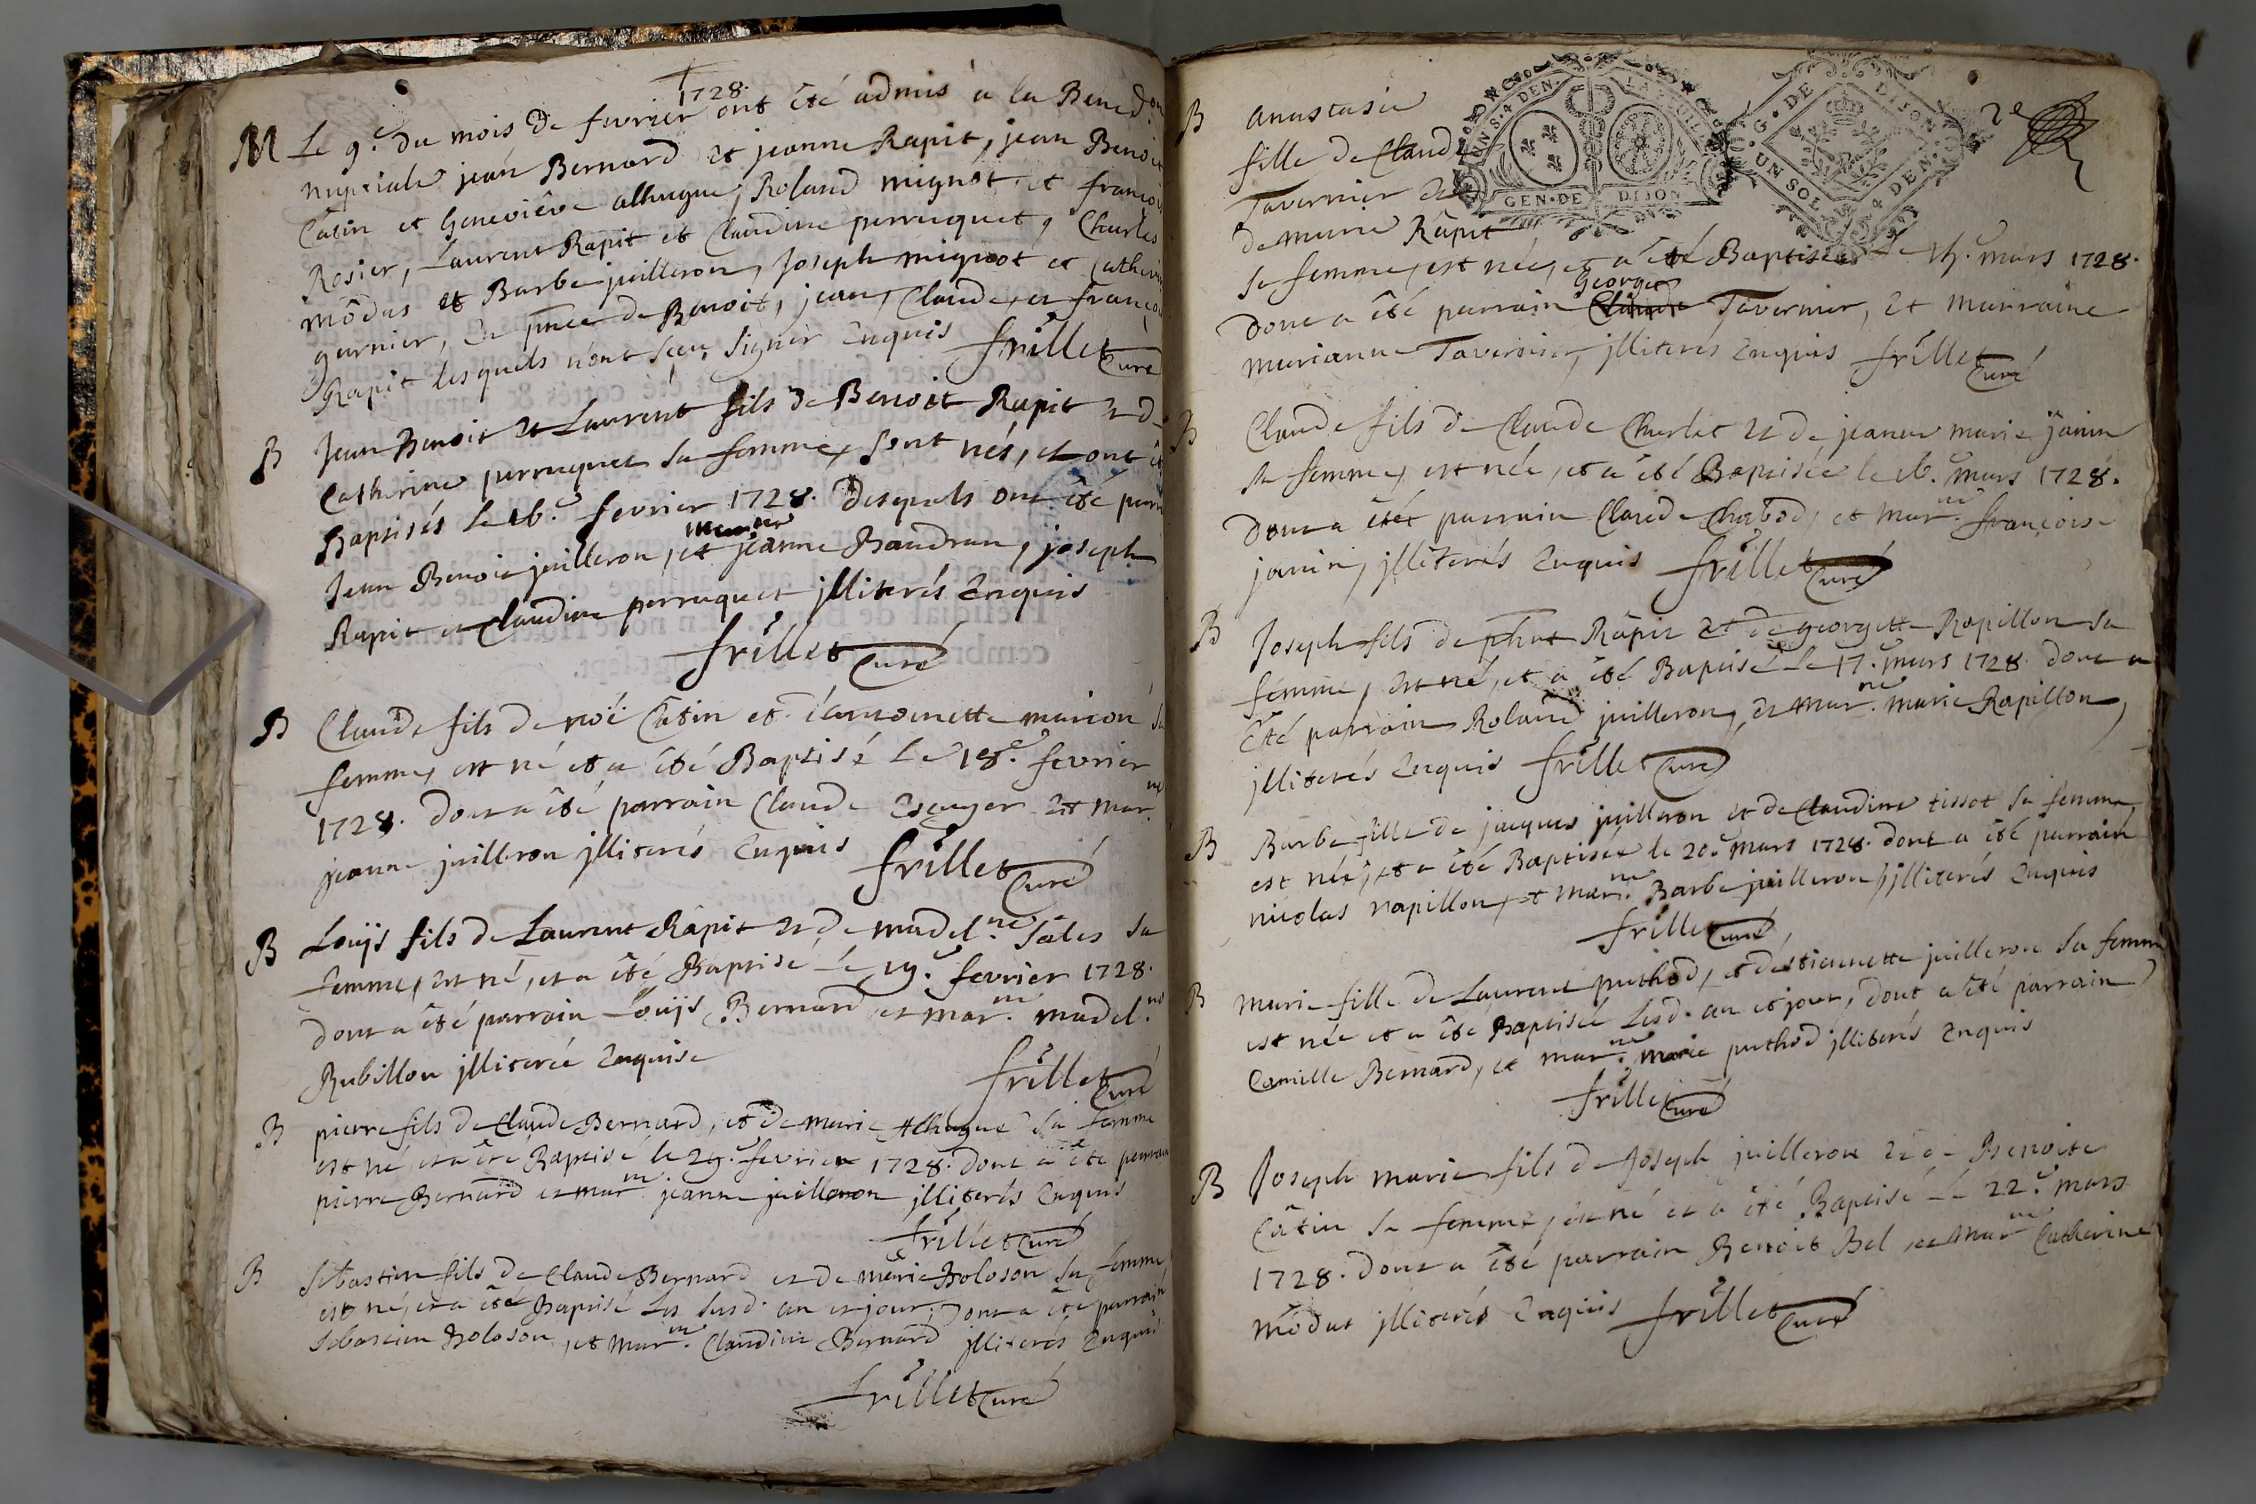 1728.
M Le 9.e du mois de fevrier ont été admis a la Bened.on
nuptiale jean Bernard et jeanne Rapit, jean Benoit
Câtin et Genevieve alhugue, Roland mignot et françois
Rosier, Laurent Rapit et Claudine perruquet, Charles
môdas et Barbe juilleron, Joseph mignot et Catherin
garnier, En pnce de Benoit, jean, Claude, et françois
Rapit lesquels n'ont sçeu signer Enquis frillet Curé
B Jean Benoit et Laurent fils de Benoit Rapit et de
Catherine perruquet sa femme, sont nés, et ont été
Baptisés le fevrier 1728. Desquels ont été parr
Jean Benoit juilleron, et jeanne Baudran, joseph
Rapit et Claudine perruquet jlliterés Enquis
frillet Curé
B Claude fils de noël Câtin et d'antoinette marion sa
femme, est né et a été Baptisé Le 18.e fevrier
1728. dont a été parrain Claude Esenger et mar.ne
jeanne juilleron jlliterés Enquis frillet Curé
B Loüjs fils de Laurent Rapit et de madel.ne Sâles sa
femme, est né, et a été Baptisé le 19.e fevrier 1728.
dont a été parrain Loüjs Bernard et mar.ne madel.ne
Rubillon jlliterée Enquise
frillet Curé
B pierre fils de Claude Bernard, et de marie Alhugue sa femme
est né et a été Baptisé le 29.e fevrier 1728. dont a été parrain
pierre Bernard et mar.ne jeanne juilleron jlliterés Enquis
frillet Curé
B Sebastien fils de Claude Bernard et de marie Holoson sa femme
est né, et a été Baptisé Les susd. an et jour, dont a été parrain
Sebastien Holoson, et mar.ne Claudine Bernard jlliterés Enquis
frillet Curé
UN S. 4 DEN.
GEN. DE DIJON
G. DE DIJON
UN SOL 4 DEN.
2e
B anastasie
fille de Claude
Tavernier et
de marie Râpit
sa femme, est née, et a été Baptisée le mars 1728.
dont a été parrain Claude George Tavernier, et marraine
marianne Tavernier, jlliterés Enquis frillet Curé
B Claude fils de Claude Charlet et de jeanne marie janin
sa femme, est née, et a été Baptisée le mars 1728.
dont a été parrain Claude Chabod, et mar.ne françoise
janin, jlliterés Enquis frillet Curé
B Joseph fils de phbt Râpit et de georgette Rapillon sa
femme, est né, et a été Baptisé Le 17.e mars 1728. dont a
été parrain Roland juilleron, et mar.ne marie Rapillon,
jlliterés Enquis frillet Curé
B Barbe fille de jacques juilleron et de Claudine tissot sa femme,
est née, et a été Baptisée le 20.e mars 1728. dont a été parrain
nicolas rapillon, et mar.ne Barbe juilleron, jlliterés Enquis
frillet Curé
B marie fille de Laurent puthod, et d'estiennette juilleron sa femme
est née et a été Baptisée Lesd. an et jour, dont a été parrain
Camille Bernard, et mar.ne marie puthod jlliterés Enquis
frillet Curé
B Joseph marie fils de Joseph juilleron et de Benoite
Câtin sa femme, est né et a été Baptisé le 22.e mars
1728. dont a été parrain Benoit Bel, et mar.ne Catherine
môdas jlliterés Enquis frillet Curé